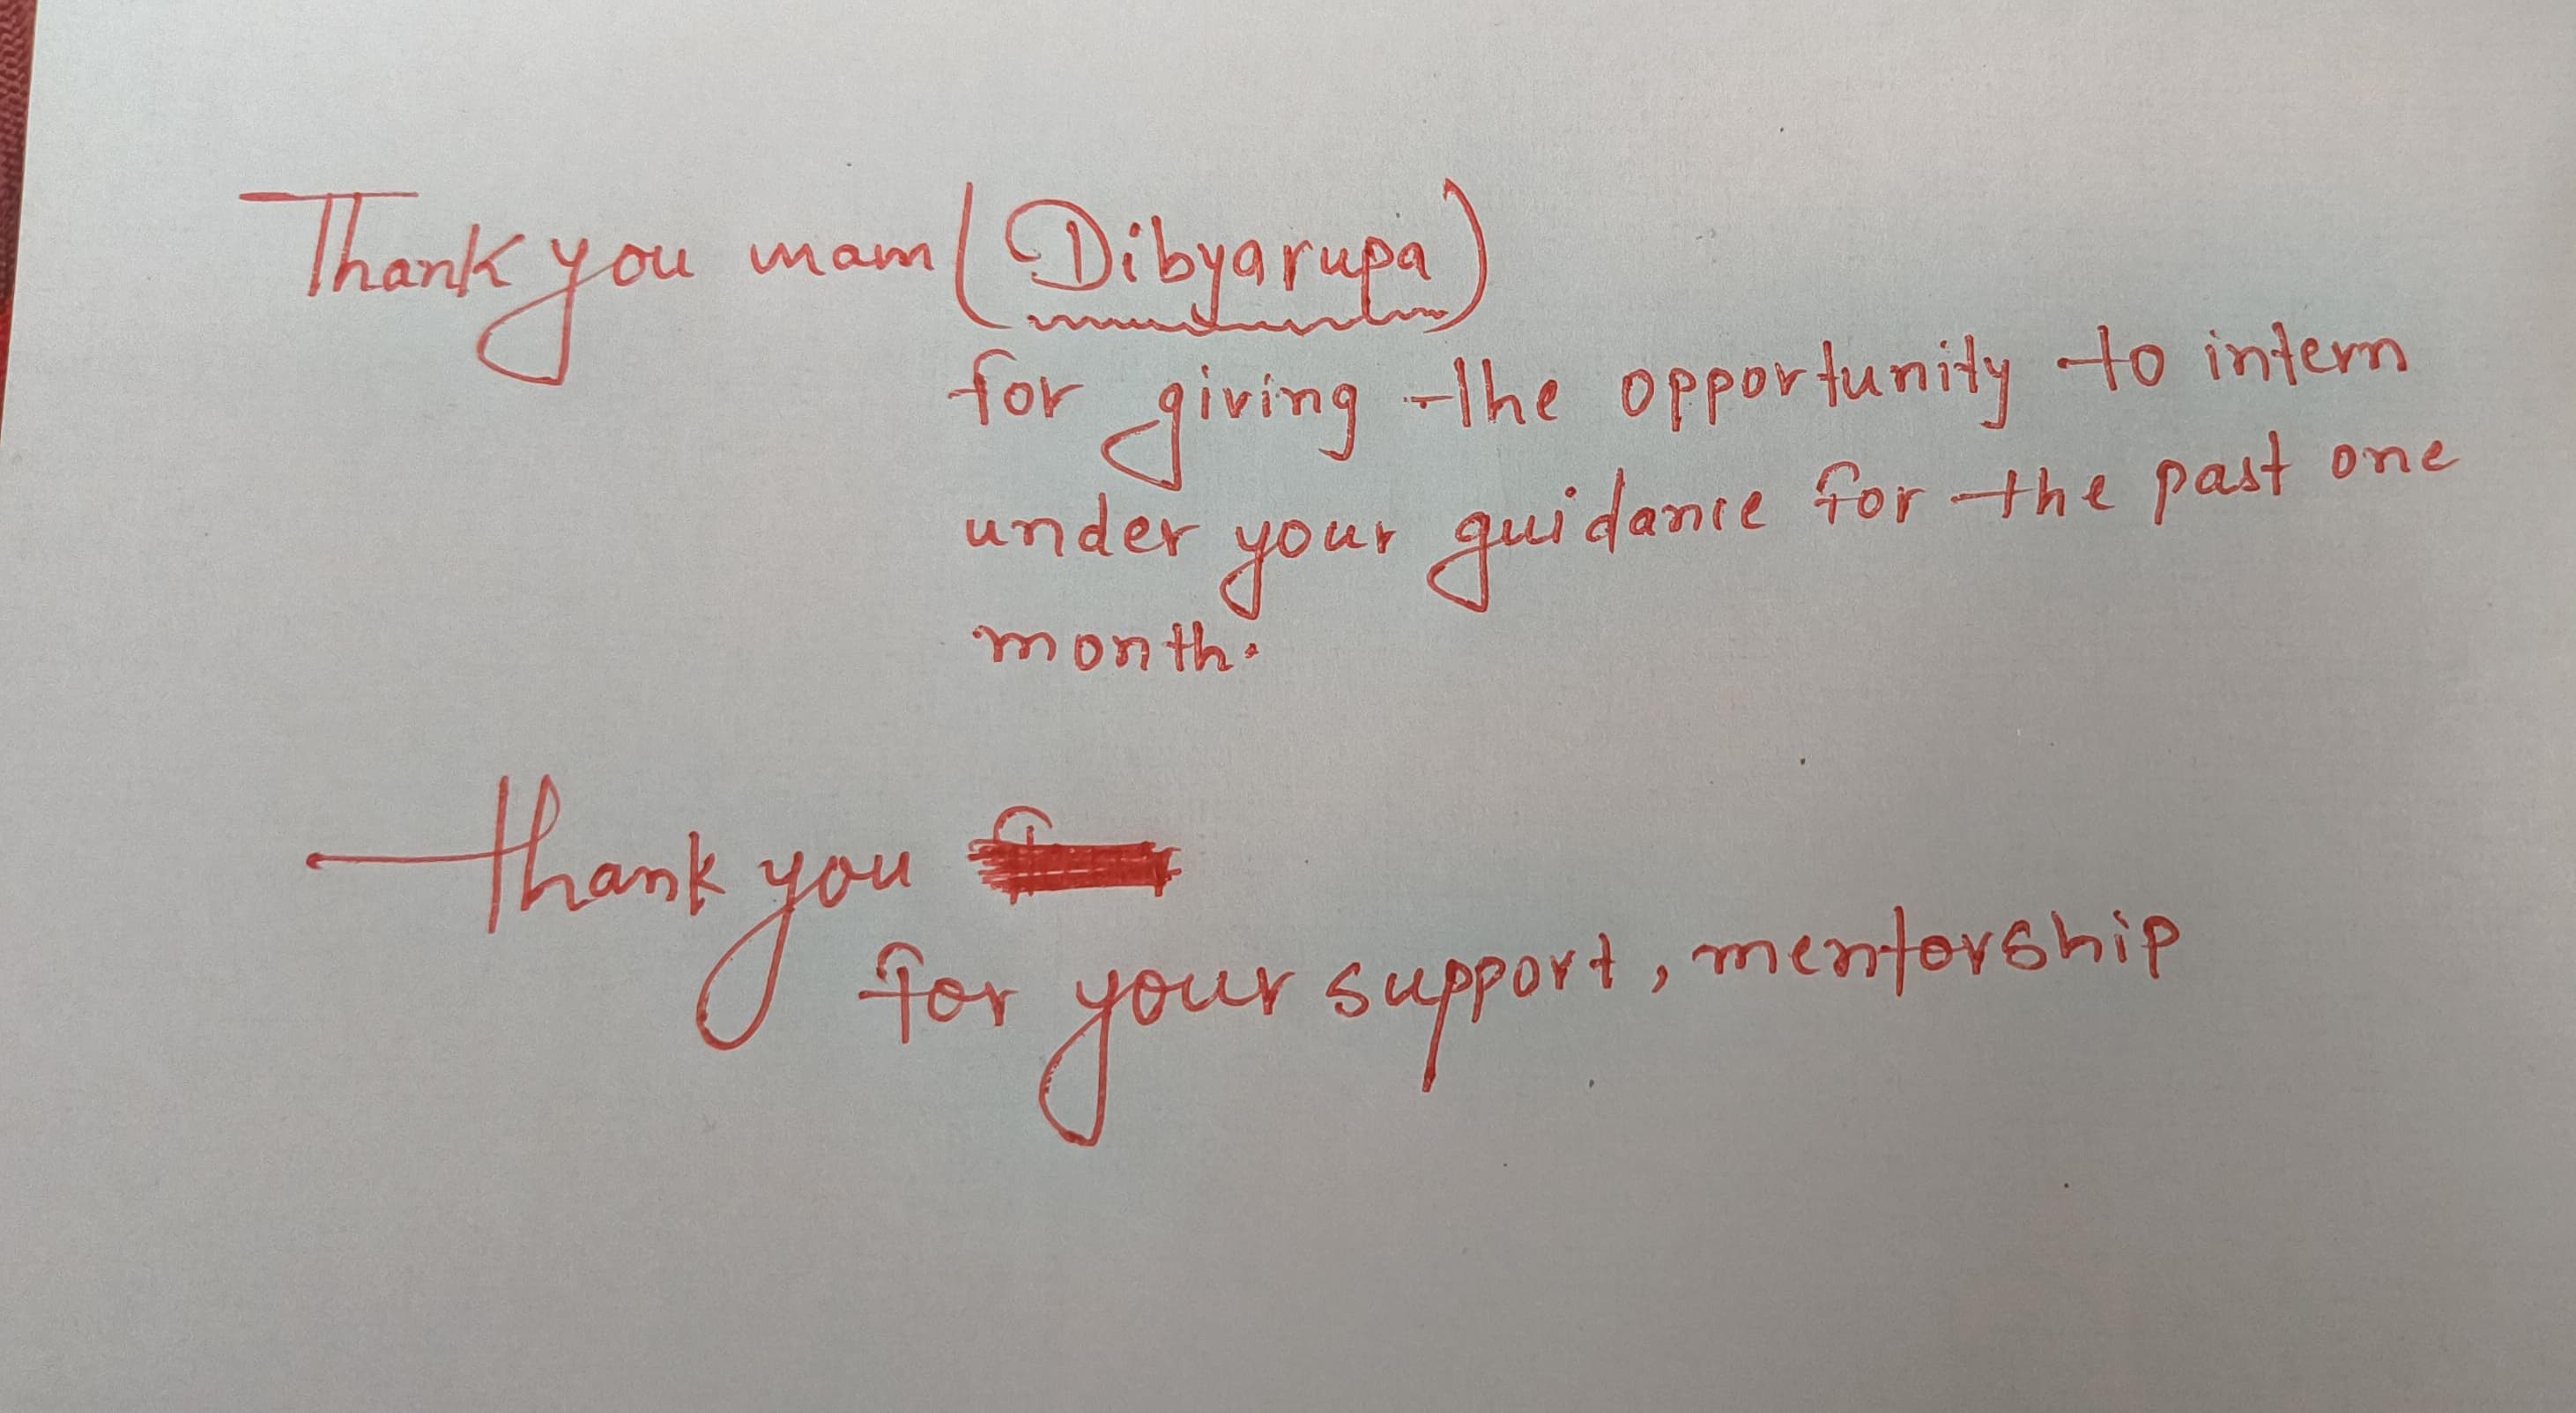 Thank you mam (Dibyarupa)
for giving the opportunity to intern
under your guidance for the past one
month.
Thank you
for your support, mentorship